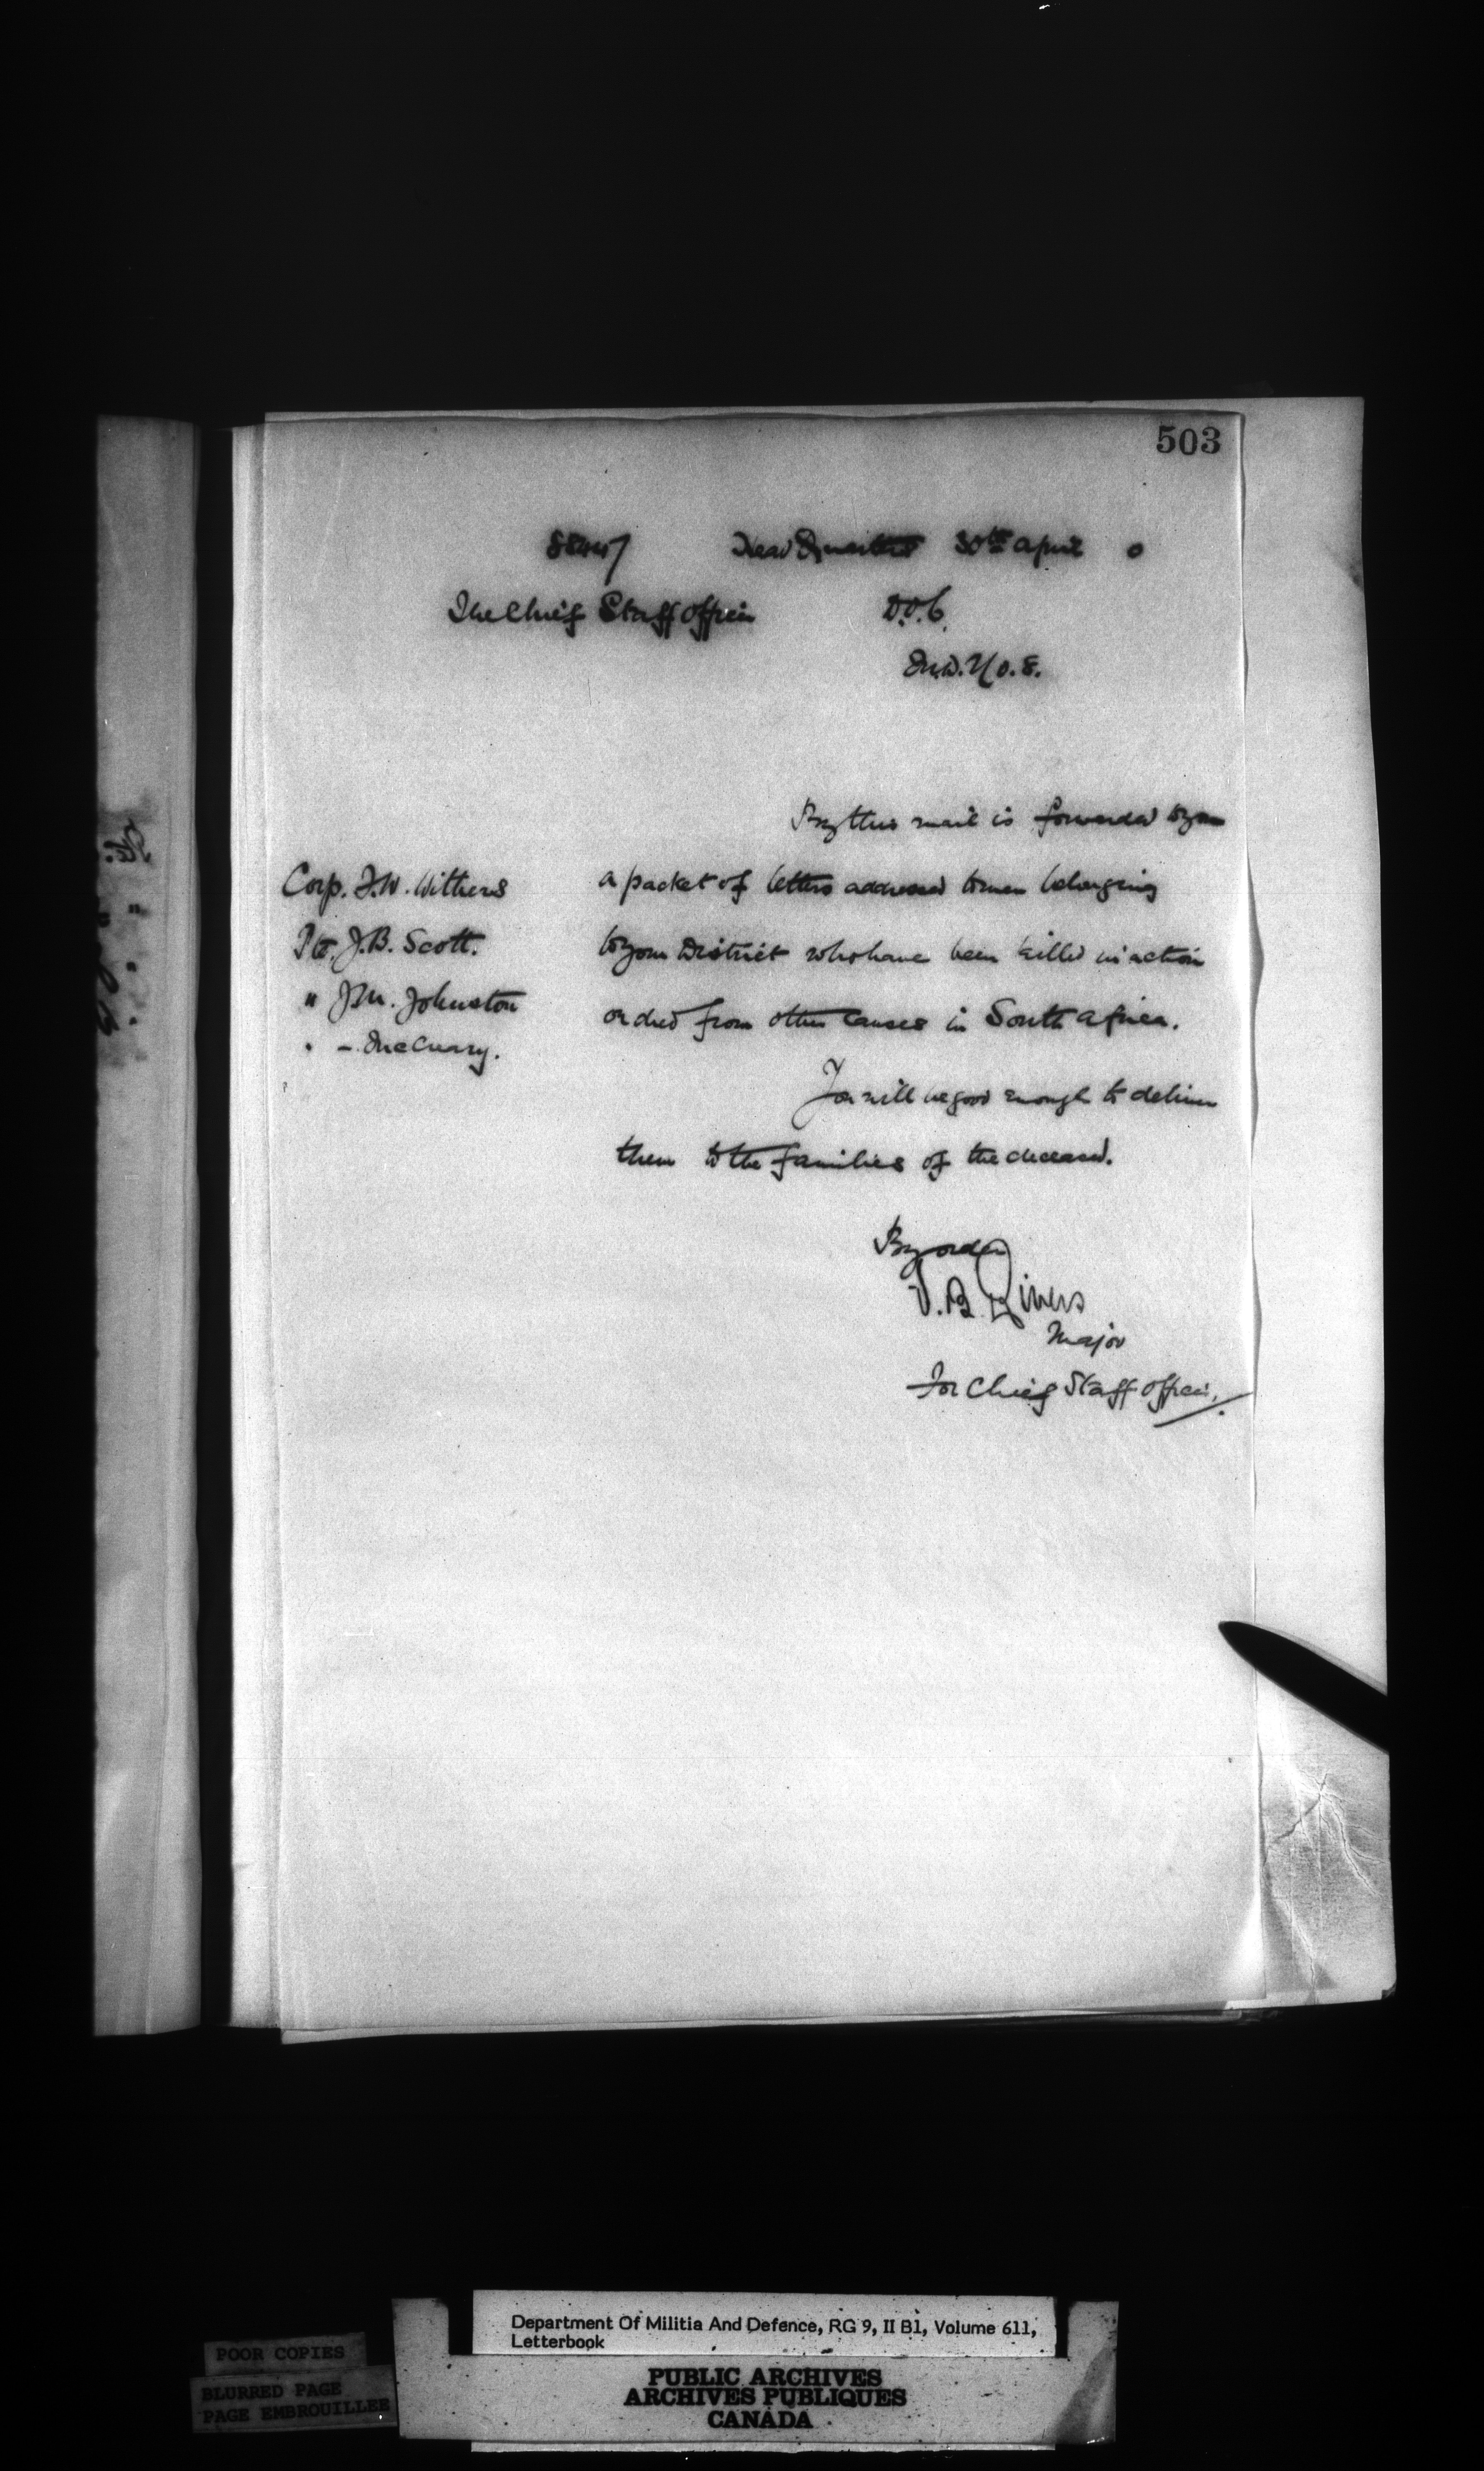 503
Head Quarters 30th April 0
The Chief Staff Officer D.O.C.
M.D. No. 8.
By this mail is forwarded to you
a packet of letters addressed to men belonging
to your District who have been killed in action
or died from other causes in South Africa.
Corp. F.W. Withers
Pte. J.B. Scott.
" J.M. Johnston
" - McCreary.
You will be good enough to deliver
them to the families of the deceased.
By order
V.B. Rivers
Major
For Chief Staff Officer.
Department Of Militia And Defence, RG 9, II B1, Volume 611,
Letterbook
POOR COPIES
BLURRED PAGE
PAGE EMBROUILLEE
PUBLIC ARCHIVES
ARCHIVES PUBLIQUES
CANADA